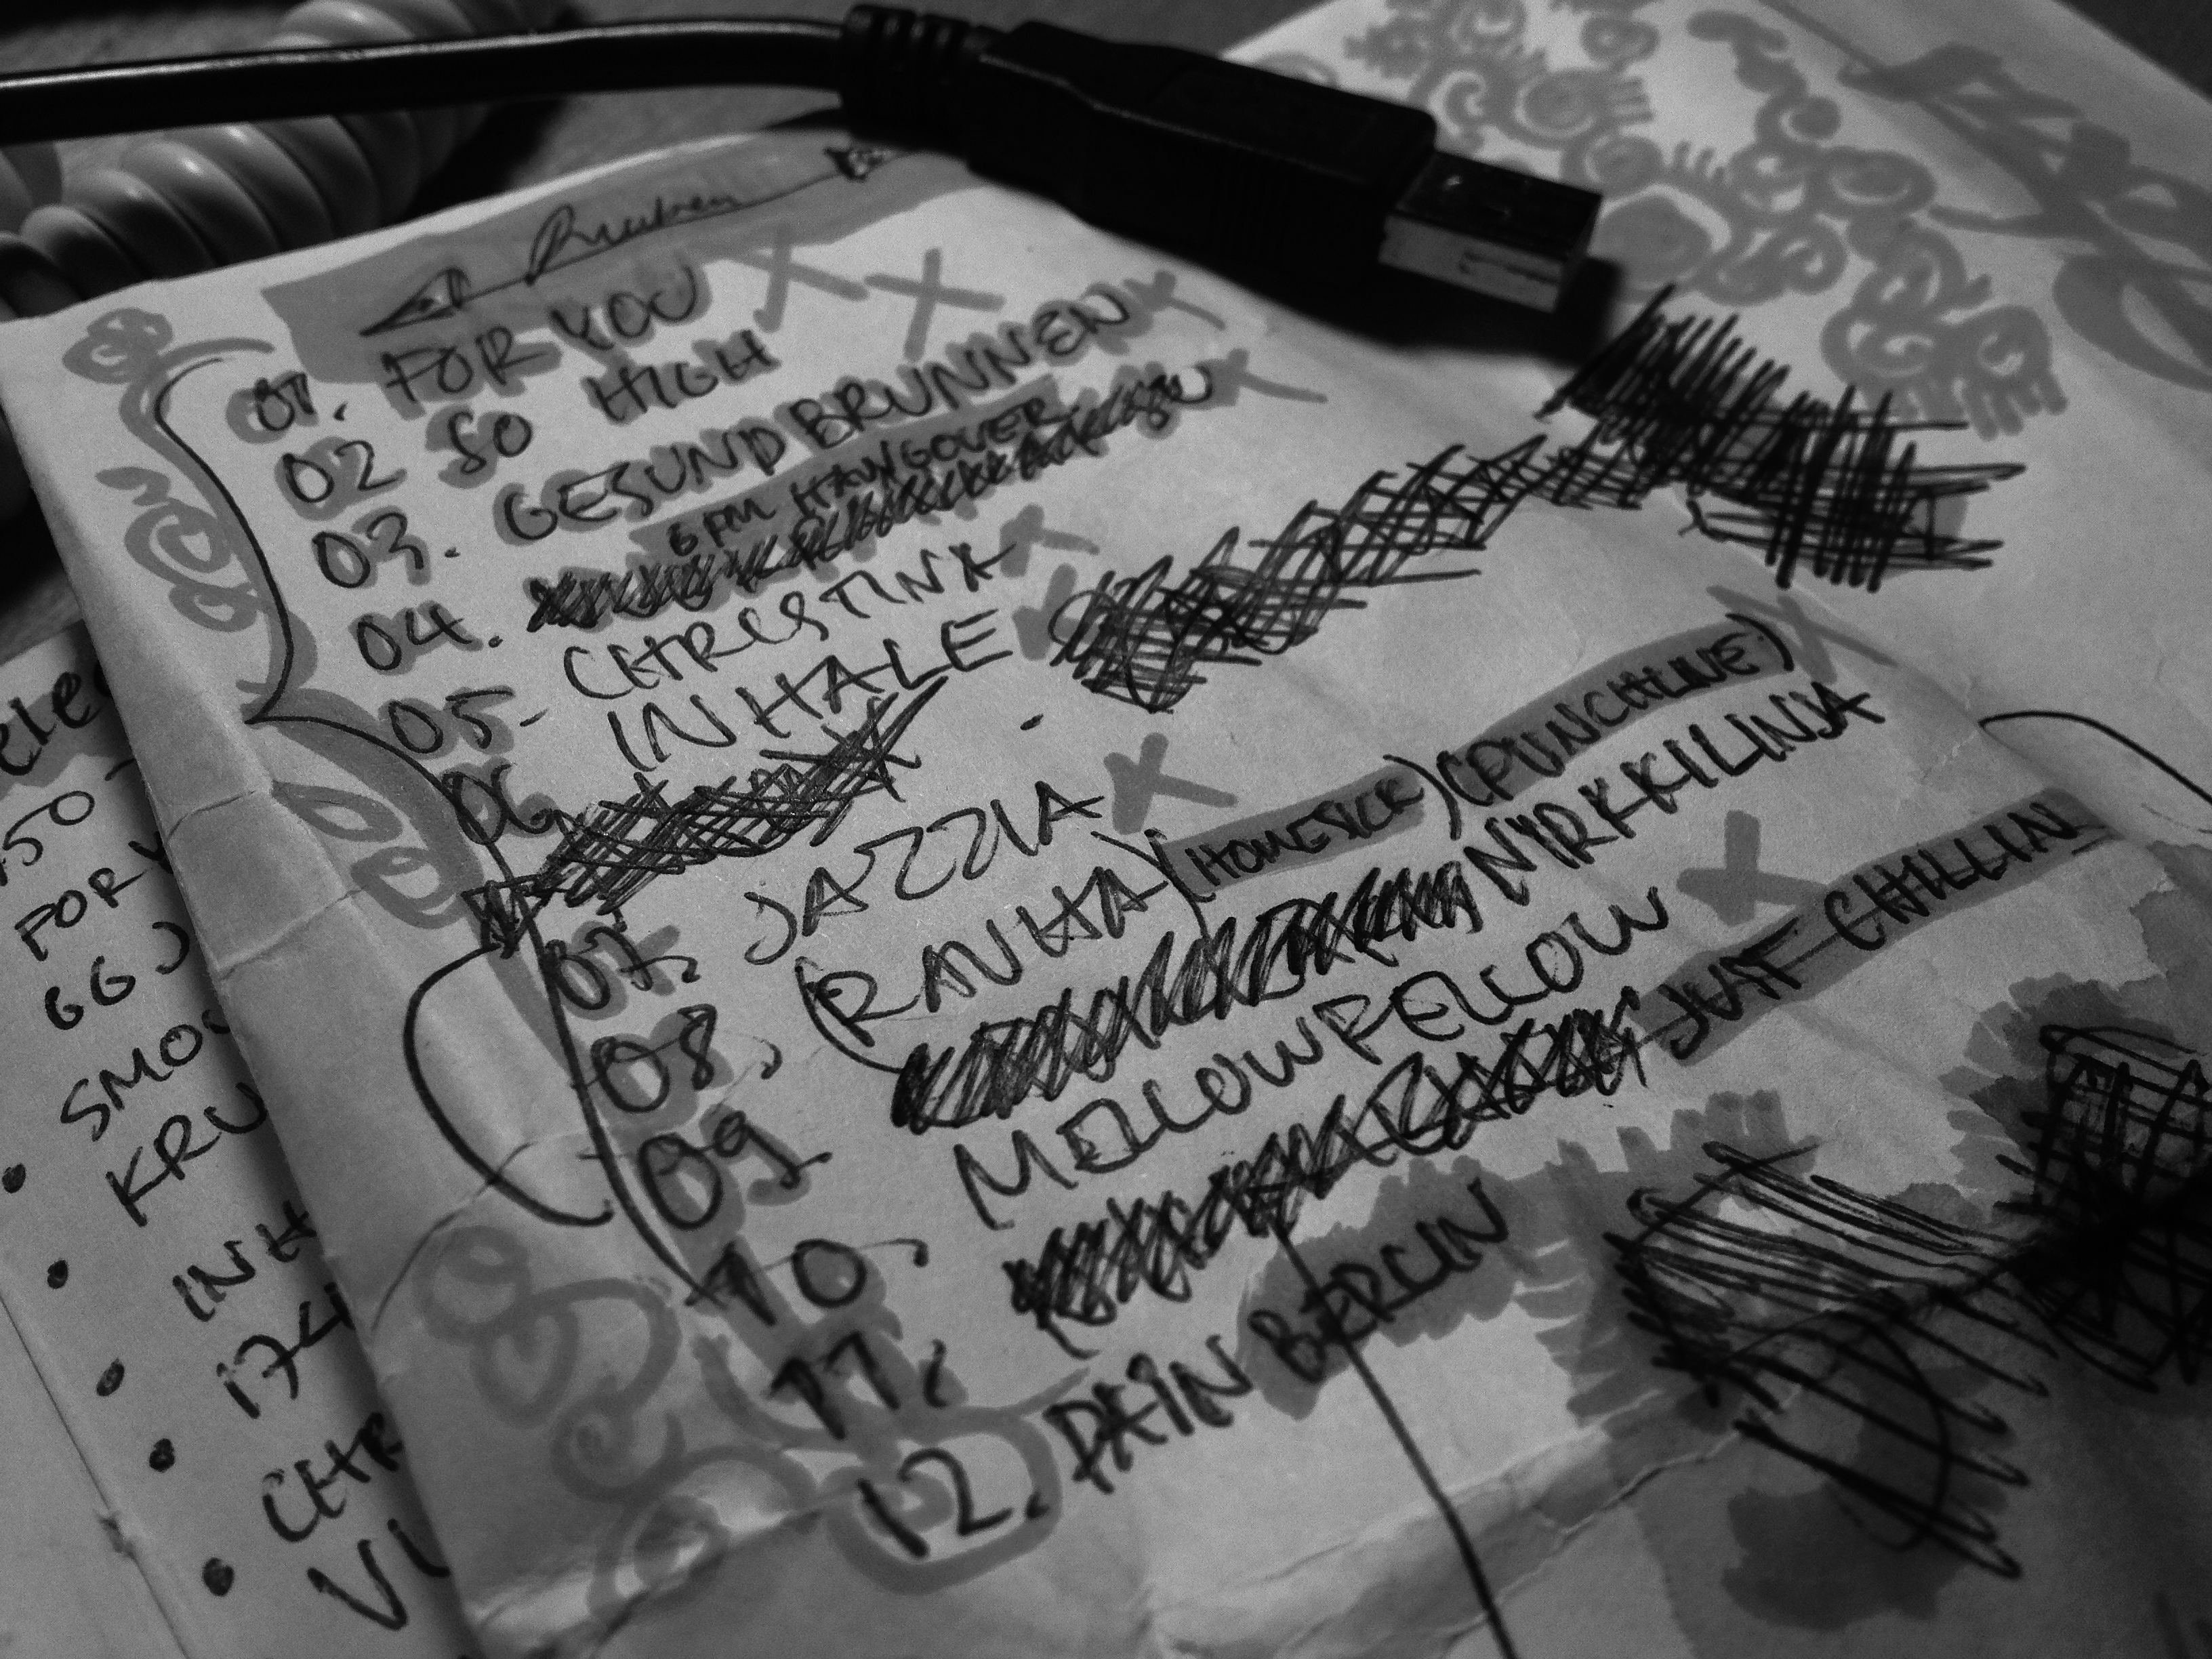 01. FOR YOU
02 SO HIGH
03. GESUNDBRUNNEN
6 PM HANGOVER
04.
05- CHRISTINA
06 INHALE
07. JAZZIA
08. (RAVHA) (HOMESICK) (PUNCHLINE)
09. NIRKKILINJA
10. MELLOWPELLOW
11. JUST CHILLIN
12. PAIN BERLIN
50
FOR Y
GG J
SMO
KRU
INH
174
CHR
VI